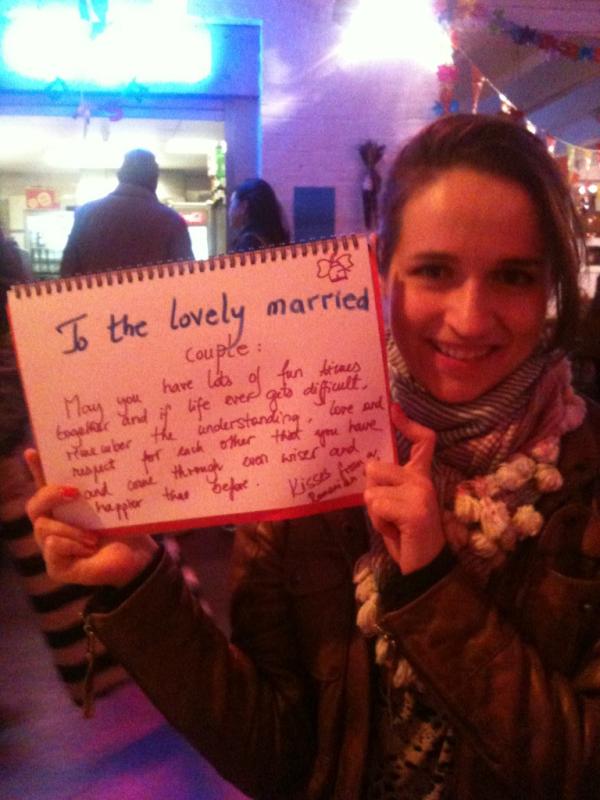 To the lovely married
couple:
May you have lots of fun times
together and if life ever gets difficult,
remember the understanding, love and
respect for each other that you have
and come through even wiser and
happier than before.
Kisses from